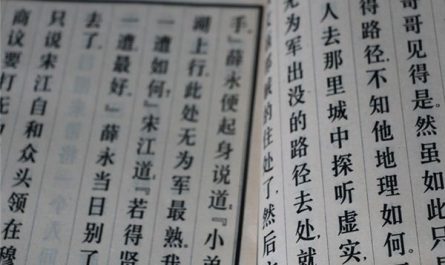 哥哥见得是。然虽如此,只
得路径。不知他地理如何。
人去那里城中探听虚实,
无为军出没的路径去处,就
贼的住处了,然后
手。』薛永便起身说道:『小弟
湖上行,此处无为军最熟。我
一遭如何?』宋江道:『若得贤
一遭最好。』薛永当日别了
去了。
只说宋江自和众头领在穆
商议要打无